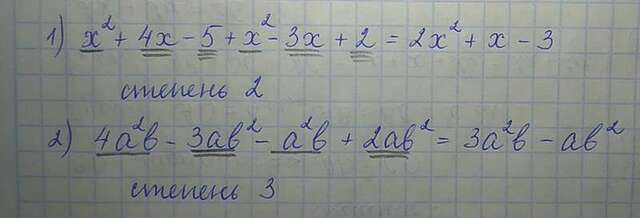 1) x² + 4x - 5 + x² - 3x + 2 = 2x² + x - 3
степень 2
2) 4a²b - 3ab² - a²b + 2ab² = 3a²b - ab²
степень 3